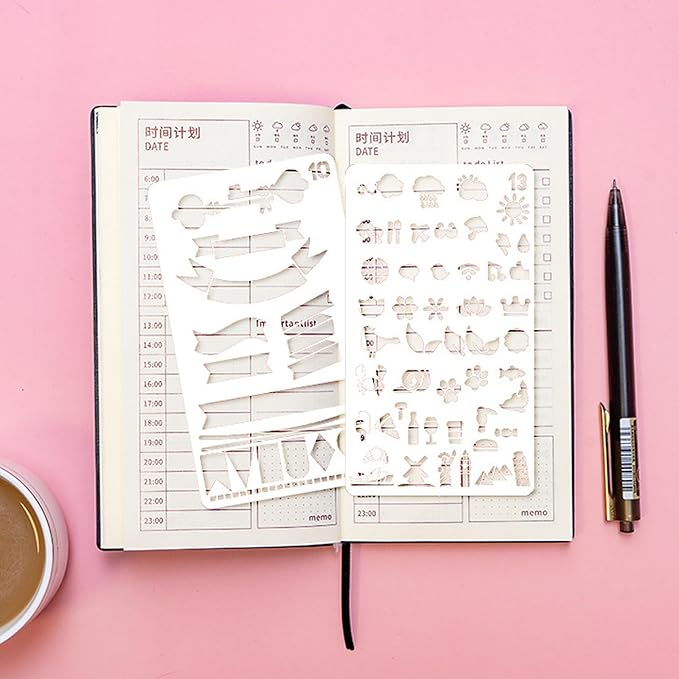 时间计划
DATE
SUN MON TUE WED THU FRI SAT
6:00
7:00
8:00
9:00
10:00
11:00
12:00
Important list
13:00
14:00
15:00
16:00
17:00
18:00
19:00
20:00
21:00
22:00
23:00
memo
10
时间计划
DATE
SUN MON TUE WED THU FRI SAT
to do List
13
23:00
memo